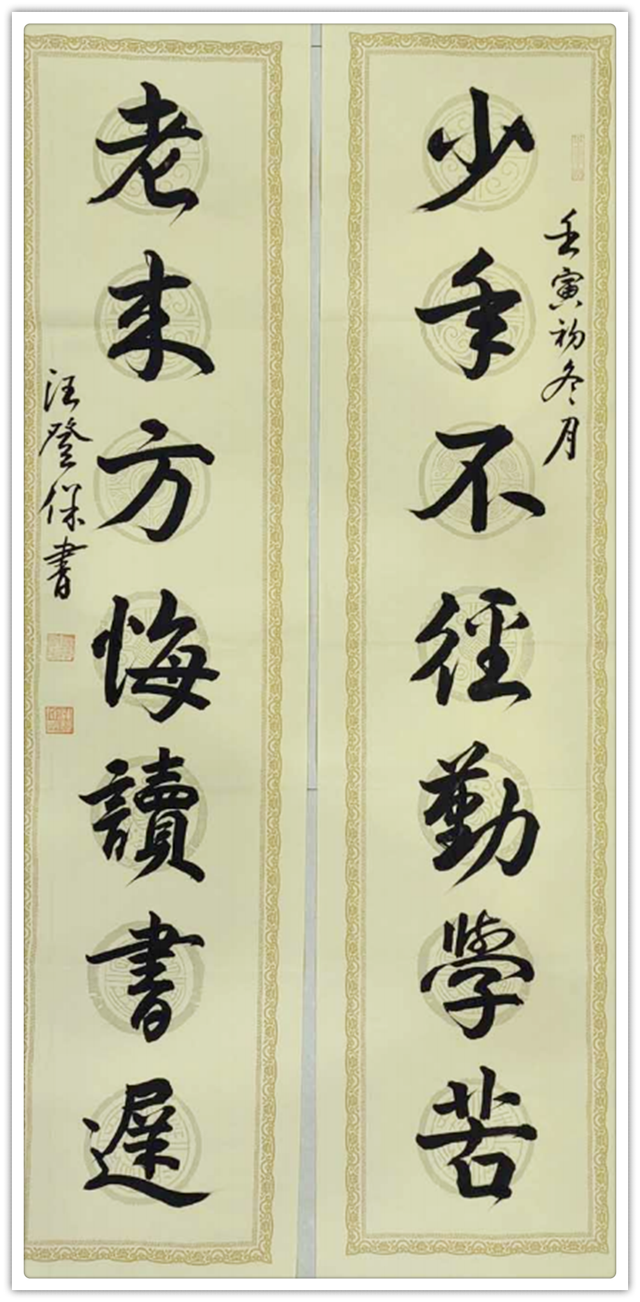 壬寅初冬月
少年不徑勤學苦
老来方悔讀書遲
汪登保書